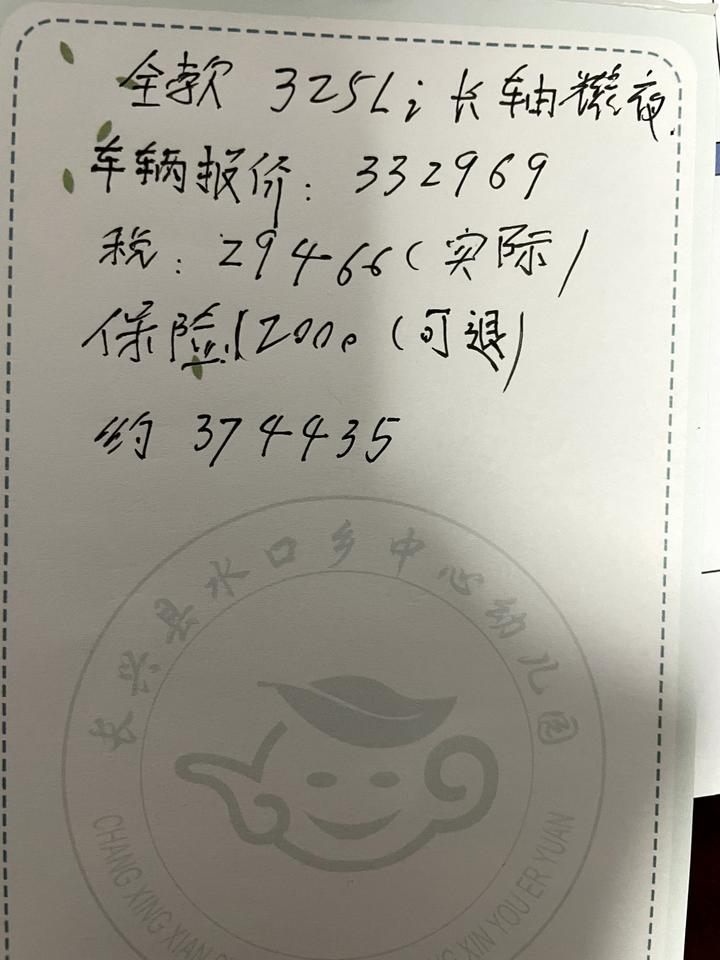 全款 325Li 长轴耀夜.
车辆报价: 332969
税: 29466(实际)
保险12000(可退)
约 374435
长兴县水口乡中心幼儿园
CHANG XING XIAN
XIN YOU ER YUAN